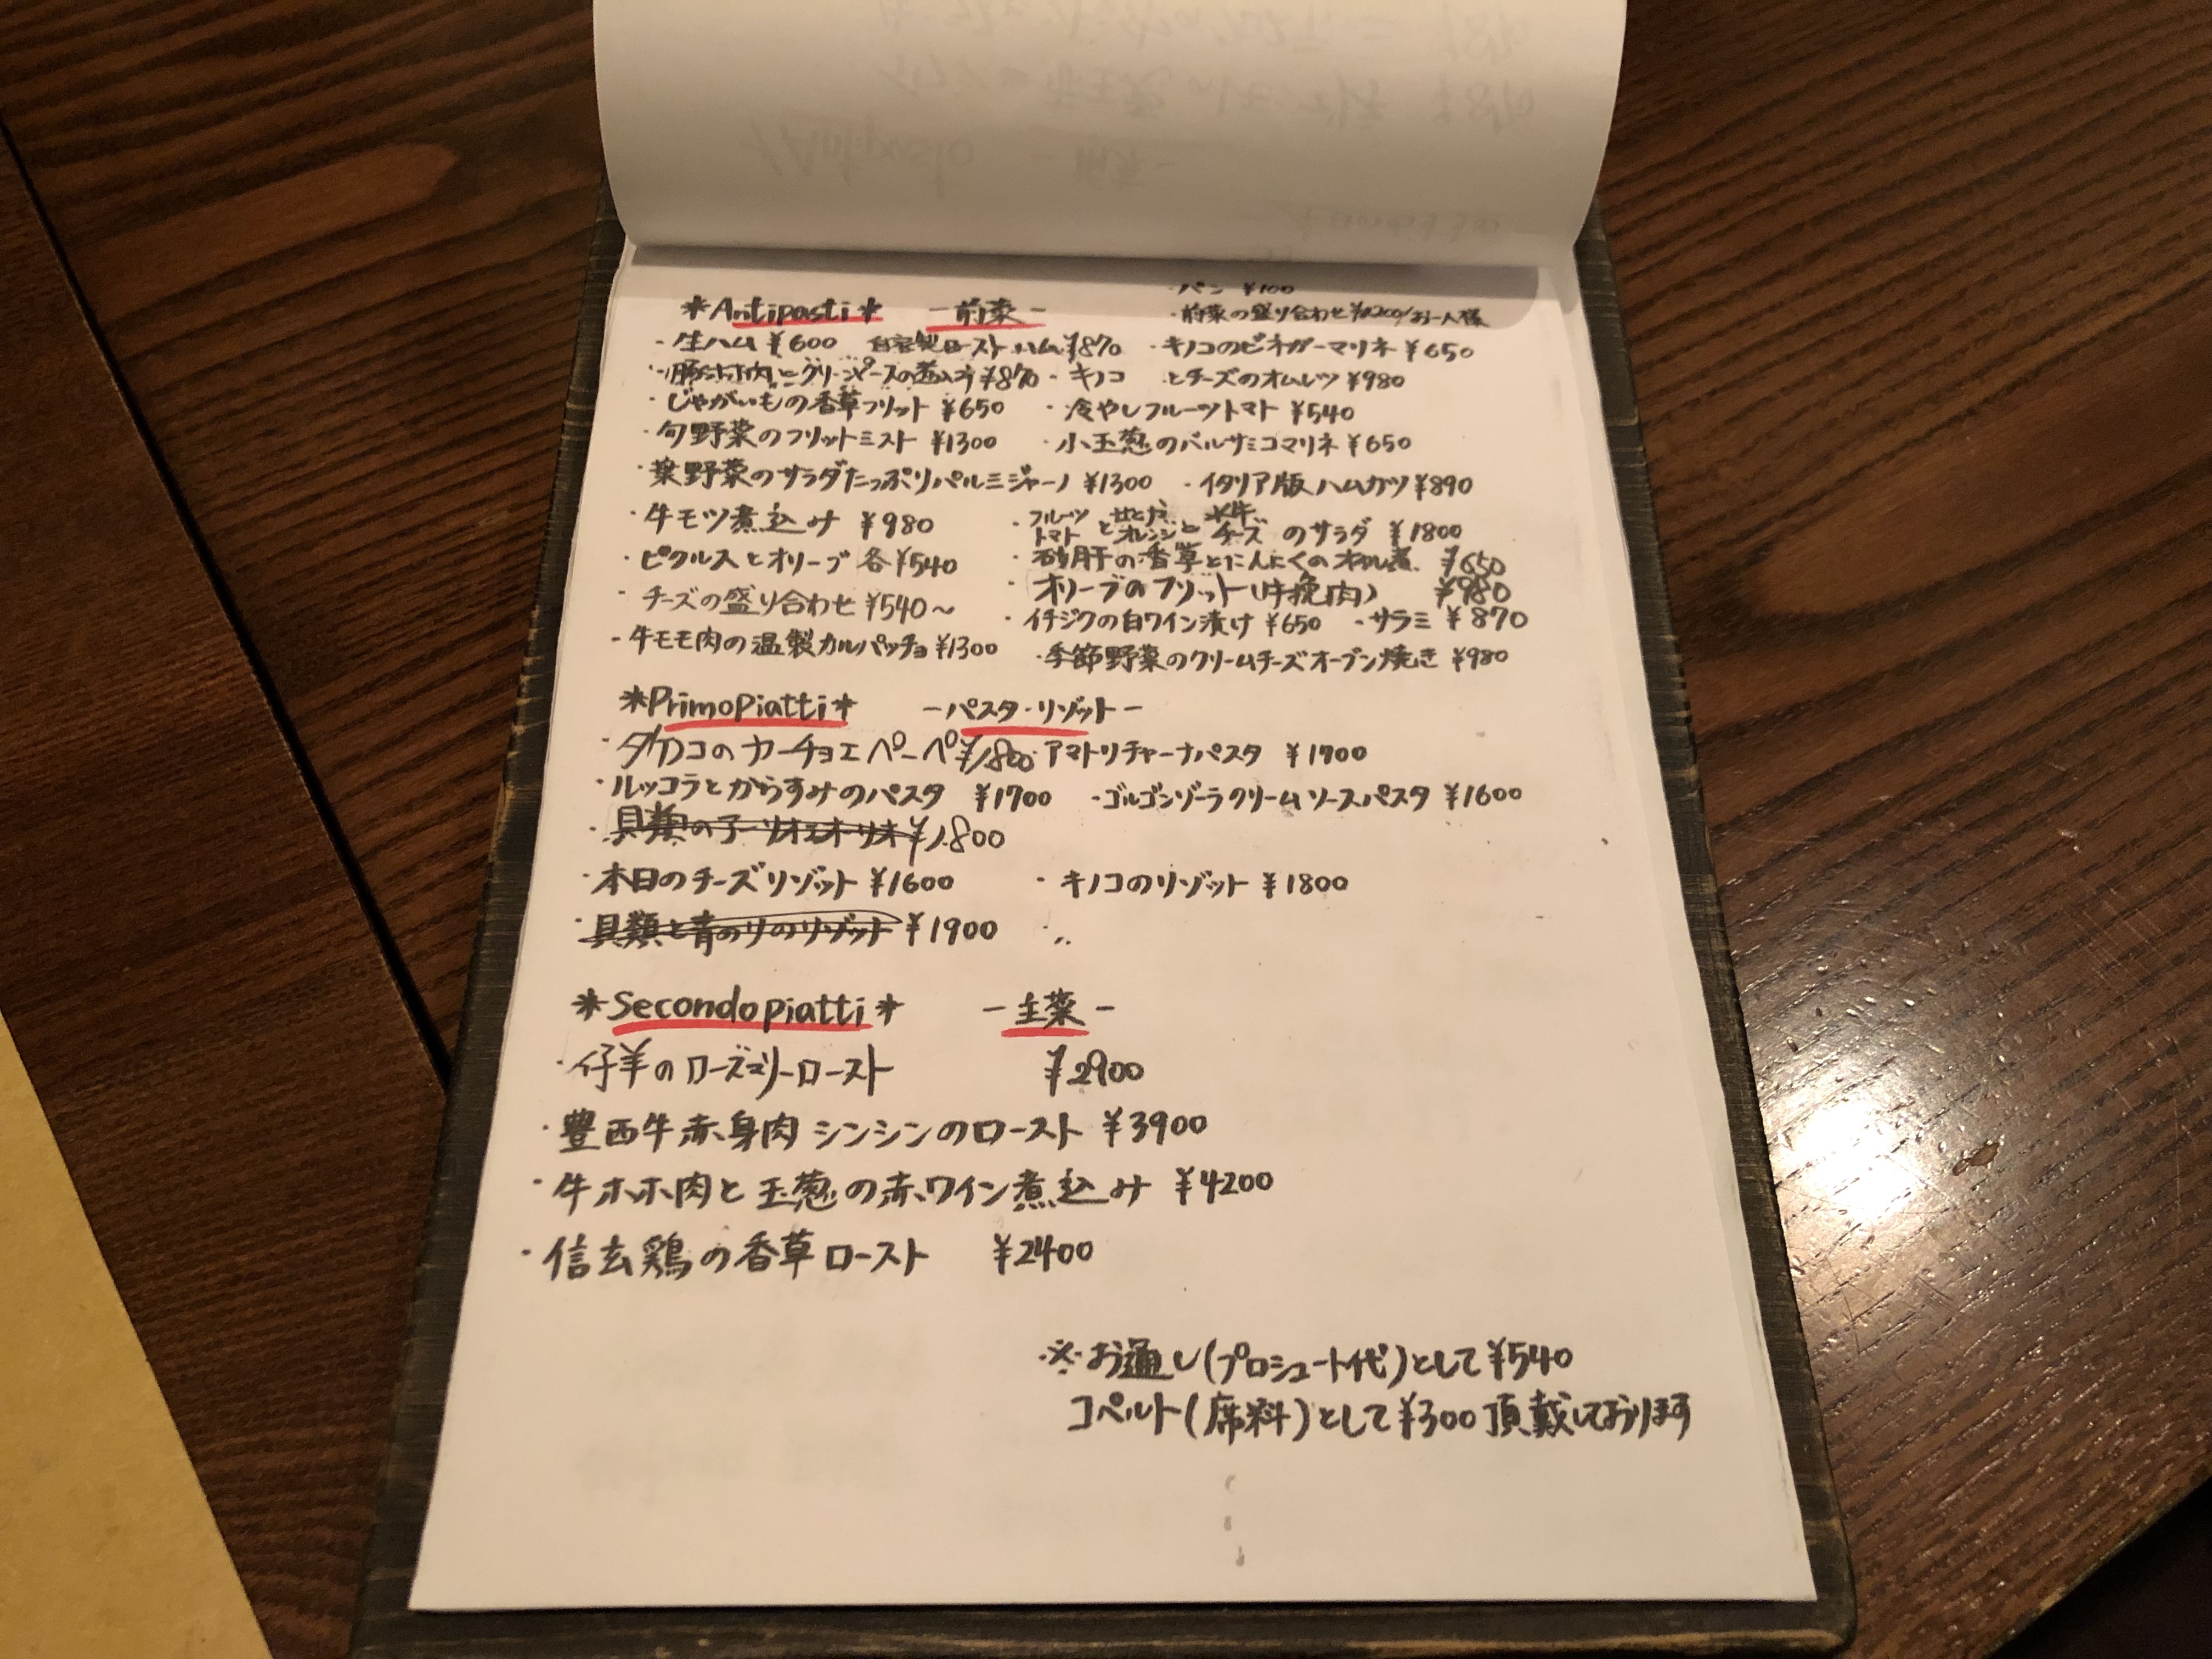 ・パン ¥100
*Antipasti* -前菜- ・前菜の盛り合わせ¥1200/お一人様
・生ハム ¥600 自家製ローストハム¥870 ・キノコのビネガーマリネ ¥650
とグリーンピースの煮込み ¥870 ・キノコ とチーズのオムレツ ¥980
・じゃがいもの香草フリット ¥650 ・冷やしフルーツトマト ¥540
・旬野菜のフリットミスト ¥1300 ・小玉葱のバルサミコマリネ ¥650
・葉野菜のサラダたっぷりパルミジャーノ ¥1300 ・イタリア版ハムカツ ¥890
・牛モツ煮込み ¥980 ・フルーツトマトとオレンジと水牛チーズのサラダ ¥1800
・ピクルスとオリーブ 各¥540 ・砂肝の香草とにんにくのオイル煮 ¥650
・チーズの盛り合わせ ¥540〜 ・オリーブのフリット(牛挽肉) ¥980
・牛モモ肉の温製カルパッチョ ¥1300 ・イチジクの白ワイン漬け ¥650 ・サラミ ¥870
・季節野菜のクリームチーズオーブン焼き ¥980
*Primopiatti* -パスタ・リゾット-
・タケノコのカーチョエペーペ ¥1800 ・アマトリチャーナパスタ ¥1700
・ルッコラとからすみのパスタ ¥1700 ・ゴルゴンゾーラクリームソースパスタ ¥1600
・貝類のアーリオエオーリオ ¥1800
・本日のチーズリゾット ¥1600 ・キノコのリゾット ¥1800
・貝類と青のりのリゾット ¥1900
*Secondopiatti* -主菜-
・仔羊のローズマリーロースト ¥2900
・豊西牛赤身肉シンシンのロースト ¥3900
・牛ホホ肉と玉葱の赤ワイン煮込み ¥4200
・信玄鶏の香草ロースト ¥2400
※お通し(プロシュート代)として¥540
コペルト(席料)として¥300頂戴しております